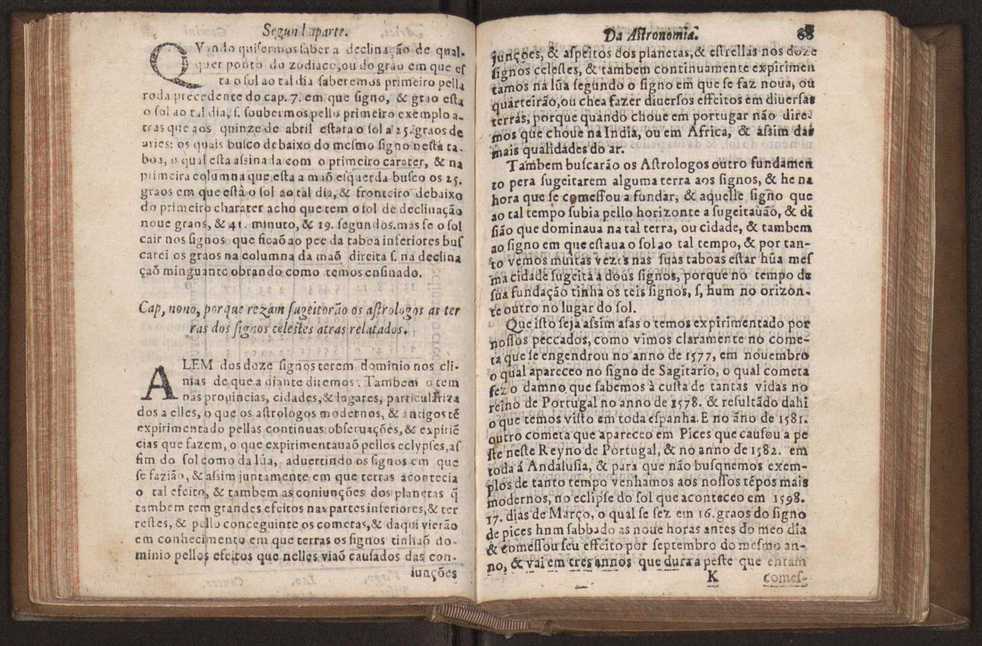 Segunda parte.
QVando quisermos saber a declinação de qual-
quer ponto do zodiaco, ou do grao em que es
ta o sol ao tal dia saberemos primeiro pella
roda precedente do cap. 7. em que signo, & grao esta
o sol ao tal dia, s. soubermos pello primeiro exemplo a-
tras que aos quinze de abril estara o sol a 25. graos de
aries: os quais busco debaixo do mesmo signo nesta ta-
boa, o qual esta assinada com o primeiro carater, & na
primeira columna que esta a maõ esquerda busco os 25.
graos em que està o sol ao tal dia, & fronteiro debaixo
do primeiro charater acho que tem o sol de declinação
noue graos, & 41. minuto, & 19. segundos. mas se o sol
cair nos signos que ficaõ ao pee da taboa inferiores bus
carei os graos na columna da maõ direita s. na declina
çaõ minguante obrando como temos ensinado.
Cap, nono, porque rezam sugeitorão os astrologos as ter
ras dos signos celestes atras relatados.
ALEM dos doze signos terem dominio nos cli-
mas de que a diante diremos. Tambem o tem
nas prouincias, cidades, & lugares, particularíza
dos a elles, o que os astrologos modernos, & antigos tẽ
expirimentado pellas continuas obseruações, & expiriẽ
cias que fazem, o que expirimentauaõ pellos eclypses, as
sim do sol como da lũa, aduertindo os signos em que
se fazião, & assim juntamente em que terras acontecia
o tal efeito, & tambem as coniunções dos planetas q̃
tambem tem grandes efeitos nas partes inferiores, & ter
restes, & pello conseguinte os cometas, & daqui vierão
em conhecimento em que terras os signos tinhaõ do-
minio pellos efeitos que nelles viaõ causados das con-
iunções
Da Astronomia. 68
junções, & aspeitos dos planetas, & estrellas nos doze
signos celestes, & tambem continuamente expirimen
tamos na lũa segundo o signo em que se faz noua, ou
quarteirão, ou chea fazer diuersos effeitos em diuersas
terras, porque quando choue em portugar não dire-
mos que choue na India, ou em Africa, & assim das
mais qualidades do ar.
Tambem buscarão os Astrologos outro fundamen
to pera sugeitarem alguma terra aos signos, & he na
hora que se comessou a fundar, & aquelle signo que
ao tal tempo subia pello horizonte a sugeitauão, & di
sião que dominaua na tal terra, ou cidade, & tambem
ao signo em que estaua o sol ao tal tempo, & por tan-
to vemos muitas vezes nas suas taboas estar hũa mes
ma cidade sugeita a dous signos, porque no tempo de
sua fundação tinha os teis signos, s, hum no orizon-
te outro no lugar do sol.
Que isto seja assim asas o temos expirimentado por
nossos peccados, como vimos claramente no come-
ta que se engendrou no anno de 1577, em nouembro
o qual apareceo no signo de Sagitario, o qual cometa
fez o damno que sabemos à custa de tantas vidas no
reino de Portugal no anno de 1578. & resultãdo dahi
o que temos visto em toda espanha. E no ãno de 1581.
outro cometa que apareceo em Pices que causou a pe
ste neste Reyno de Portugal, & no anno de 1582. em
toda á Andalusia, & para que não busquemos exem-
plos de tanto tempo venhamos aos nossos tẽpos mais
modernos, no eclipse do sol que aconteceo em 1598.
17. dias de Março, o qual se fez em 16. graos do signo
de pices hnm sabbado as noue horas antes do meo dia
& comessou seu effeito por septembro do mesmo an-
no, & vai em tres annos que dura a peste que entam
K comes-